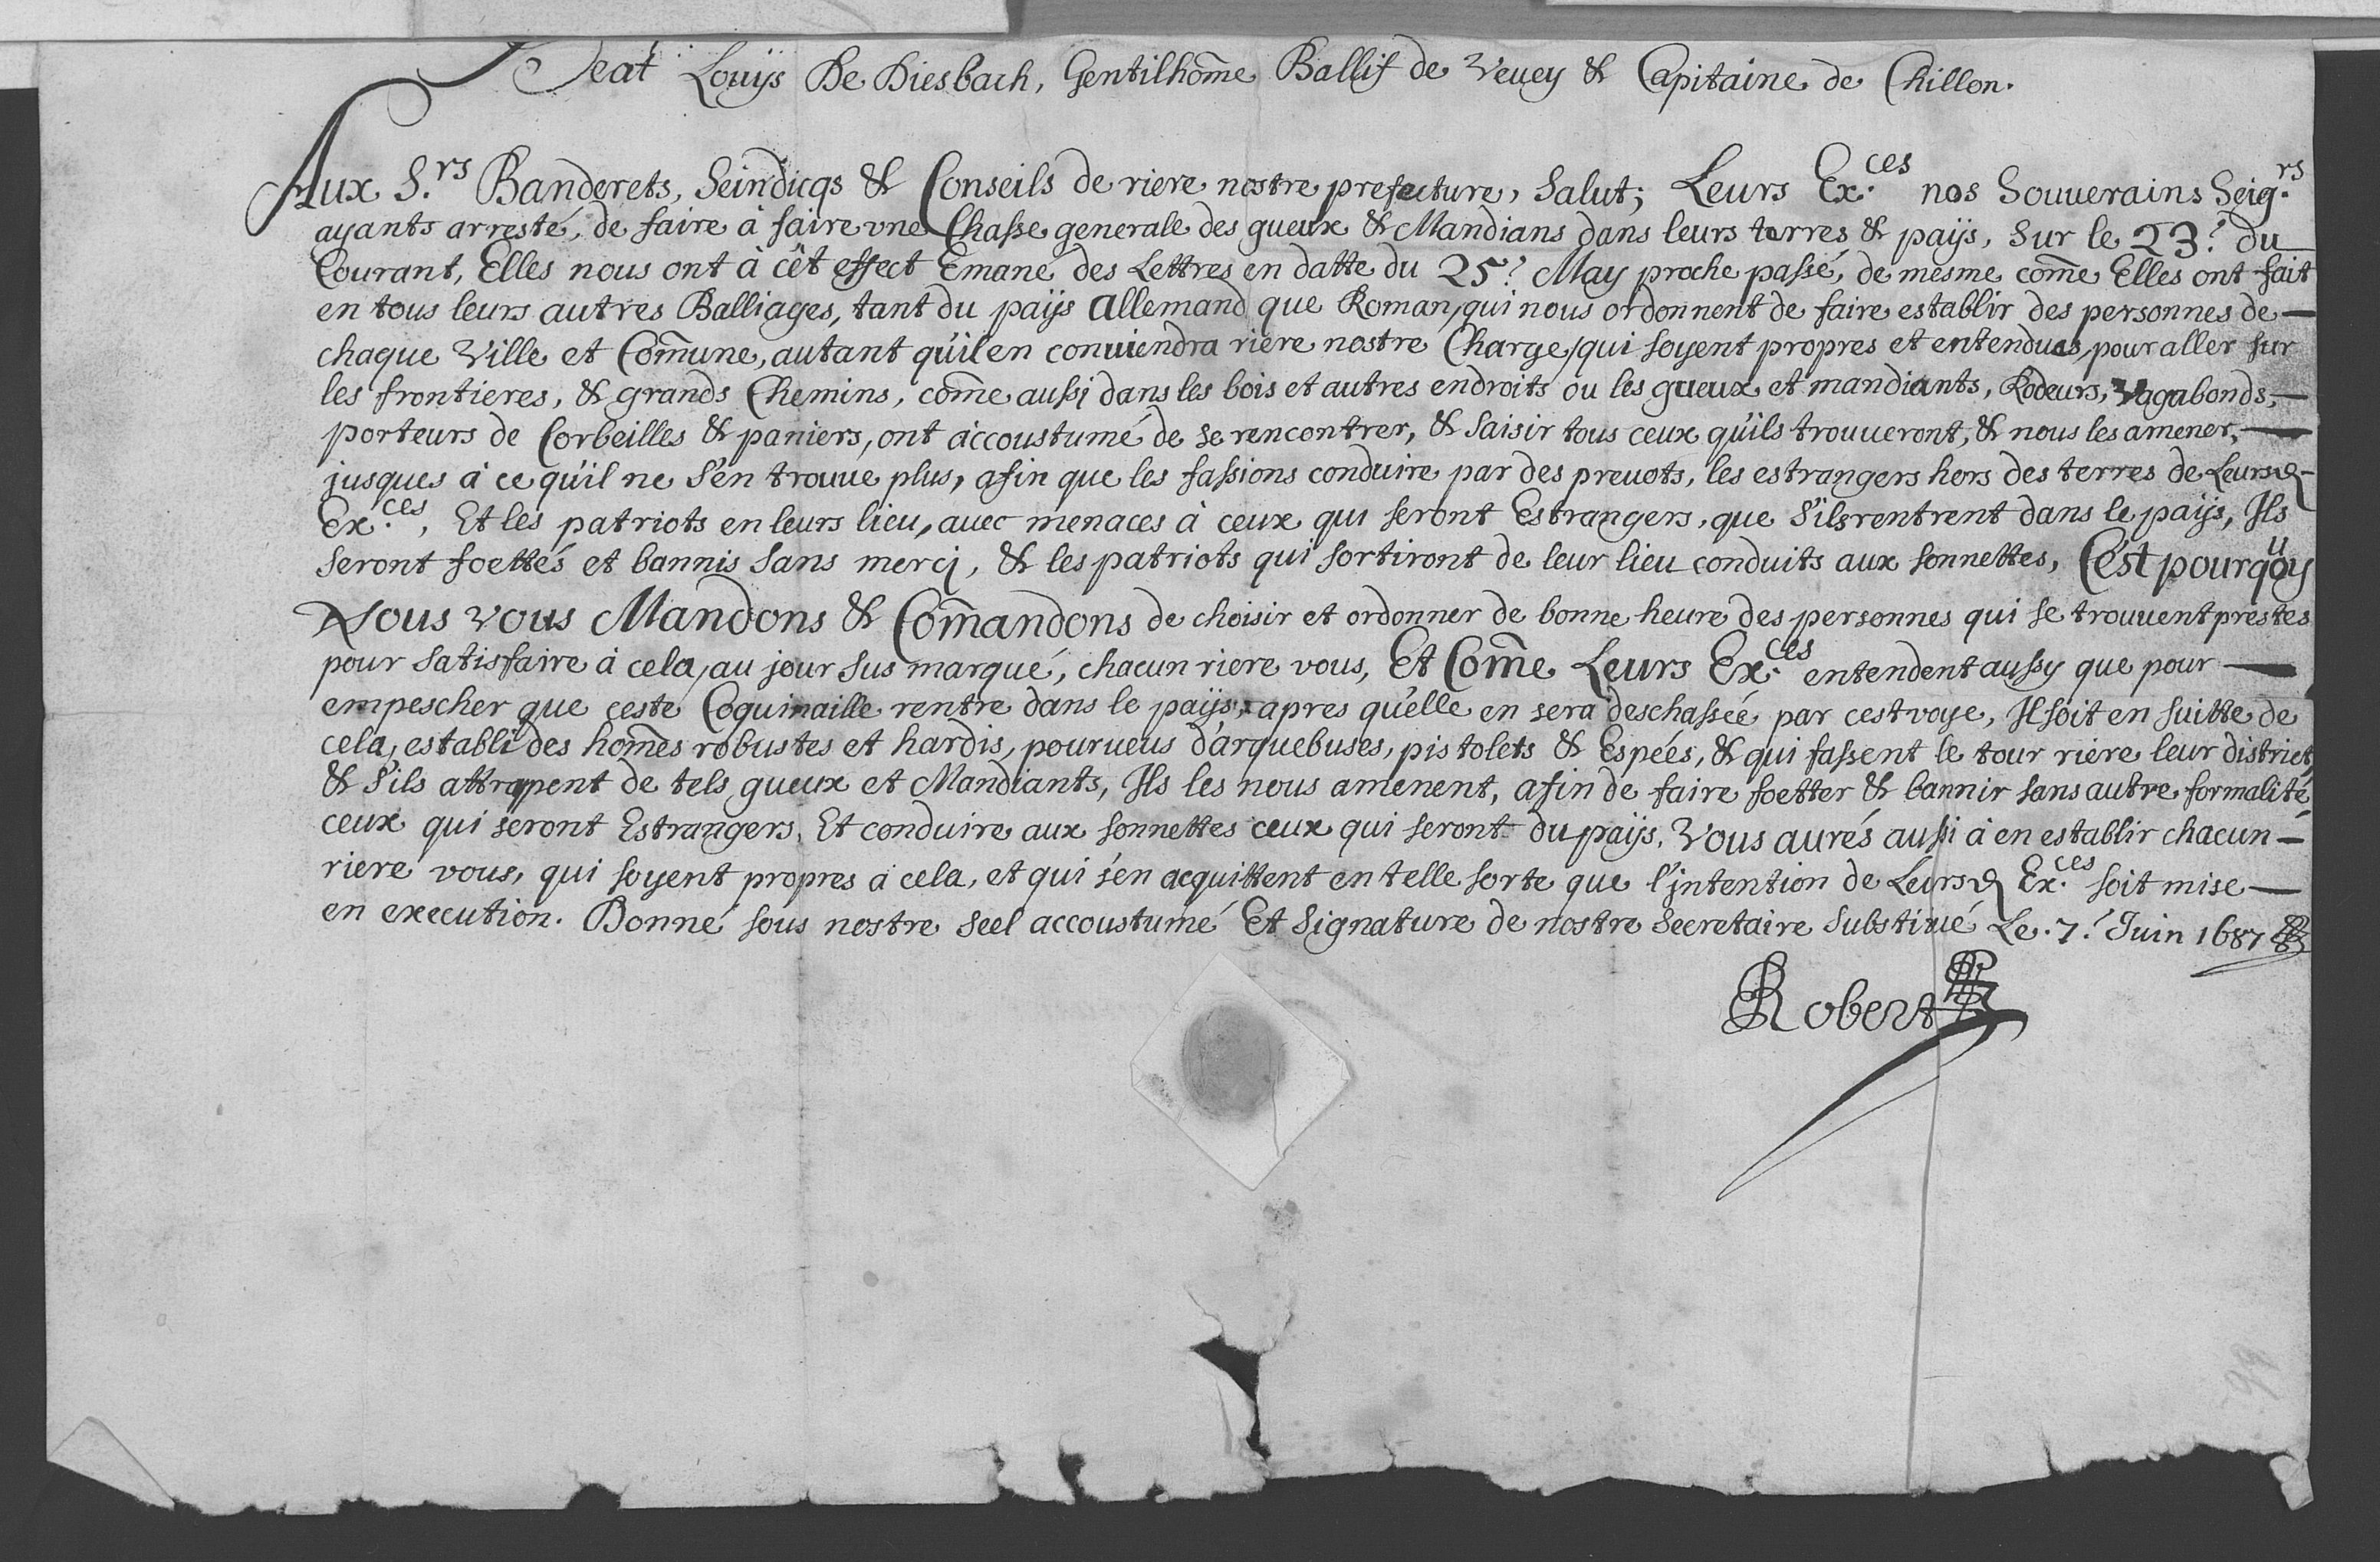 Beat Louÿs De Diesbach, Gentilhom̃e Ballif de Veuey & Capitaine de Chillon.
Aux S.rs Banderets, Seindicqs & Conseils de riere nostre prefecture, Salut; Leurs Ex.ces nos Souuerains Seig.rs
ayants arresté, de faire à faire vne Chasse generale des gueux & Mandians dans leurs terres & paÿs, Sur le 23.e du
Courant, Elles nous ont à cét effect Emané des Lettres en datte du 25.e May proche passé, de mesme com̃e Elles ont fait
en tous leurs autres Balliages, tant du paÿs allemand que Roman, qui nous ordonnent de faire establir des personnes de —
chaque Ville et Com̃une, autant qu'il en conuiendra riere nostre Charge, qui soyent propres et entendues, pour aller sur
les frontieres, & grands Chemins, com̃e aussj dans les bois et autres endroits ou les gueux et mandiants, Rodeurs, Vagabonds, —
porteurs de Corbeilles & paniers, ont accoustumé de se rencontrer, & saisir tous ceux qu'ils trouueront, & nous les amener, —
jusques à ce qu'il ne s'en trouue plus, afin que les fassions conduire par des preuots, les estrangers hors des terres de Leursd. -
Ex.ces, Et les patriots en leurs lieu, auec menaces à ceux qui seront Estrangers, que s'ils rentrent dans le paÿs, Ils
seront foettés et bannis sans mercj, & les patriots qui sortiront de leur lieu conduits aux sonnettes, C'est pourquoy
Nous vous Mandons & Com̃andons de choisir et ordonner de bonne heure des personnes qui se trouuent prestes
pour satisfaire à cela, au jour sus marqué, chacun riere vous, Et Com̃e Leurs Ex.ces entendent aussy que pour —
empescher que ceste Coquinaille rentre dans le paÿs, apres qu'elle en sera deschassée par cest voye, Il soit en suitte de
cela, establi des hom̃es robustes et hardis, pourueus d'arquebuses, pistolets & Espées, & qui fassent le tour riere leur district,
& s'ils attrapent de tels gueux et Mandiants, Ils les nous amenent, afin de faire foetter & bannir sans autre formalité
ceux qui seront Estrangers, Et conduire aux sonnettes ceux qui seront du paÿs. Vous aurés aussi à en establir chacun —
riere vous, qui soyent propres à cela, et qui s'en acquittent en telle sorte que l'jntention de Leursd. Ex.ces soit mise —
en execution. Donné sous nostre seel accoustumé Et signature de nostre secretaire substitué Le. 7.e Juin 1687
Robert